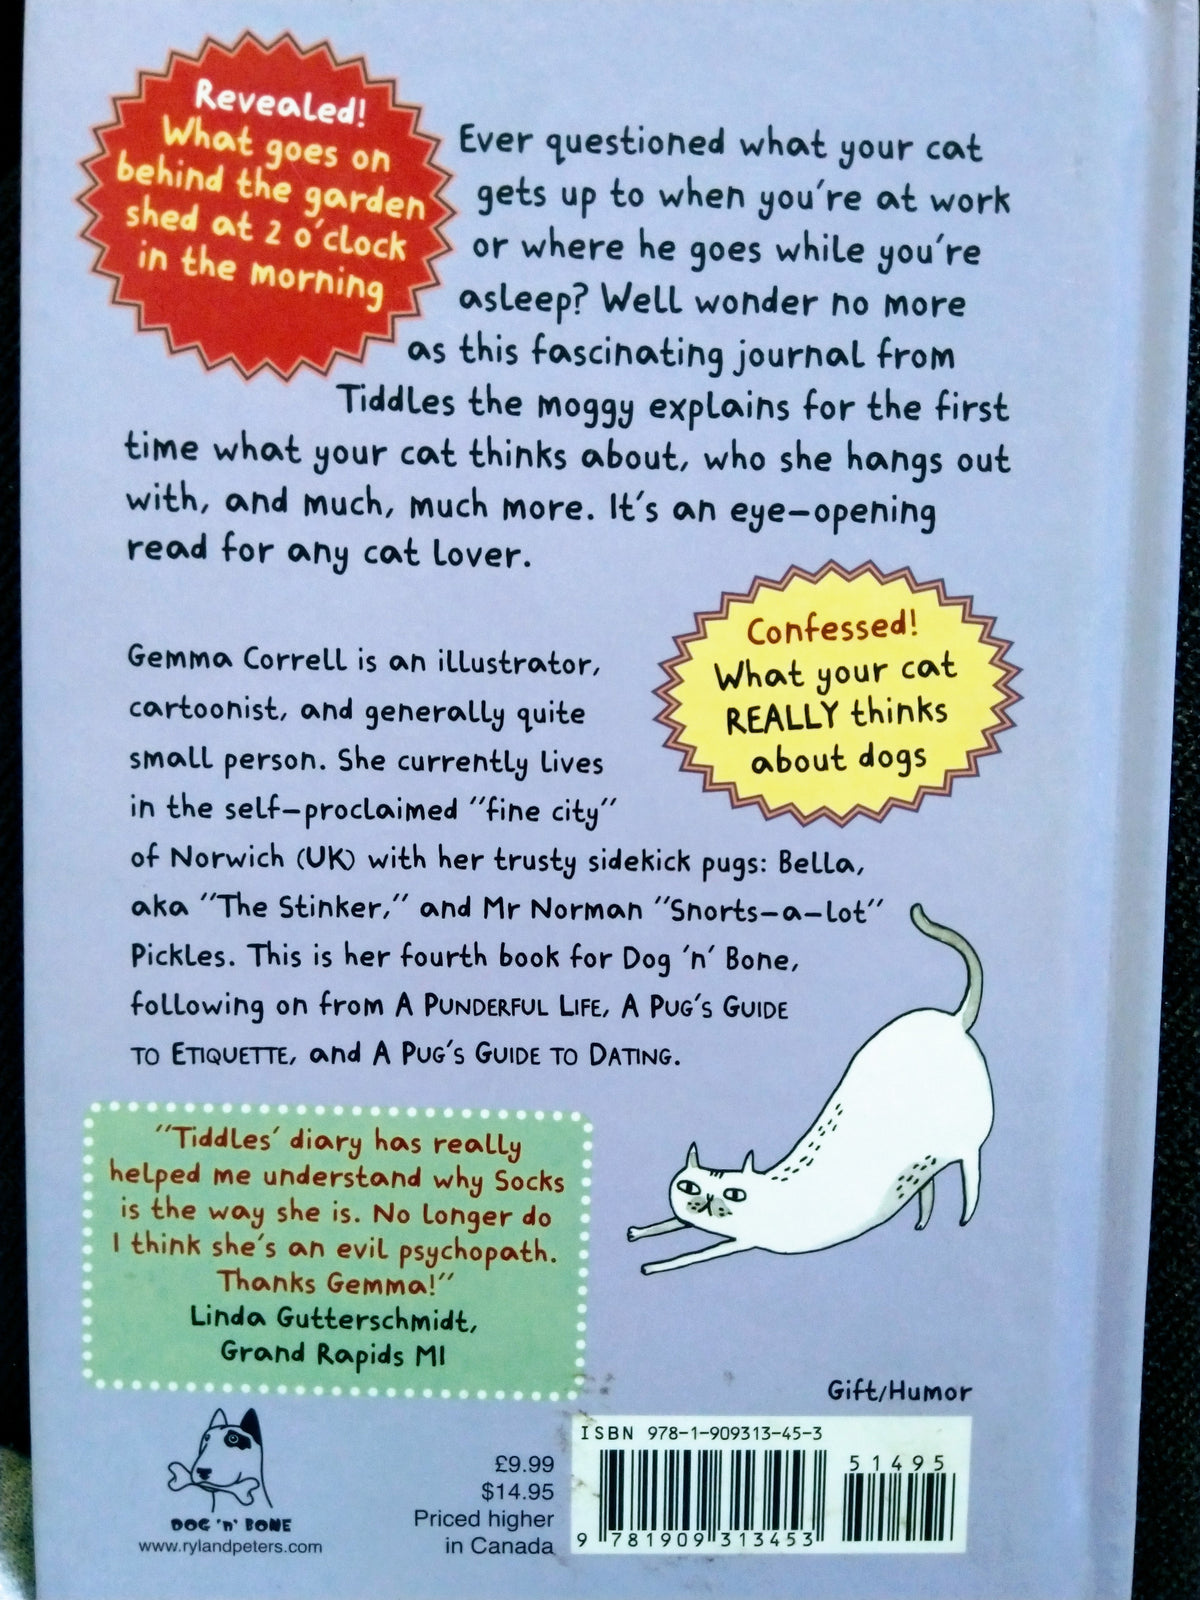 Revealed!
What goes on
behind the garden
shed at 2 o'clock
in the morning
Ever questioned what your cat
gets up to when you're at work
or where he goes while you're
asleep? Well wonder no more
as this fascinating journal from
Tiddles the moggy explains for the first
time what your cat thinks about, who she hangs out
with, and much, much more. It's an eye-opening
read for any cat lover.
Confessed!
What your cat
REALLY thinks
about dogs
Gemma Correll is an illustrator,
cartoonist, and generally quite
small person. She currently lives
in the self-proclaimed "fine city"
of Norwich (UK) with her trusty sidekick pugs: Bella,
aka "The Stinker," and Mr Norman "Snorts-a-lot"
Pickles. This is her fourth book for Dog 'n' Bone,
following on from A PUNDERFUL LIFE, A PUG'S GUIDE
TO ETIQUETTE, and A PUG'S GUIDE TO DATING.
"Tiddles' diary has really
helped me understand why Socks
is the way she is. No longer do
I think she's an evil psychopath.
Thanks Gemma!"
Linda Gutterschmidt,
Grand Rapids MI
DOG 'n' BONE
www.rylandpeters.com
£9.99
$14.95
Priced higher
in Canada
Gift/Humor
ISBN 978-1-909313-45-3
51495
9 781909 313453